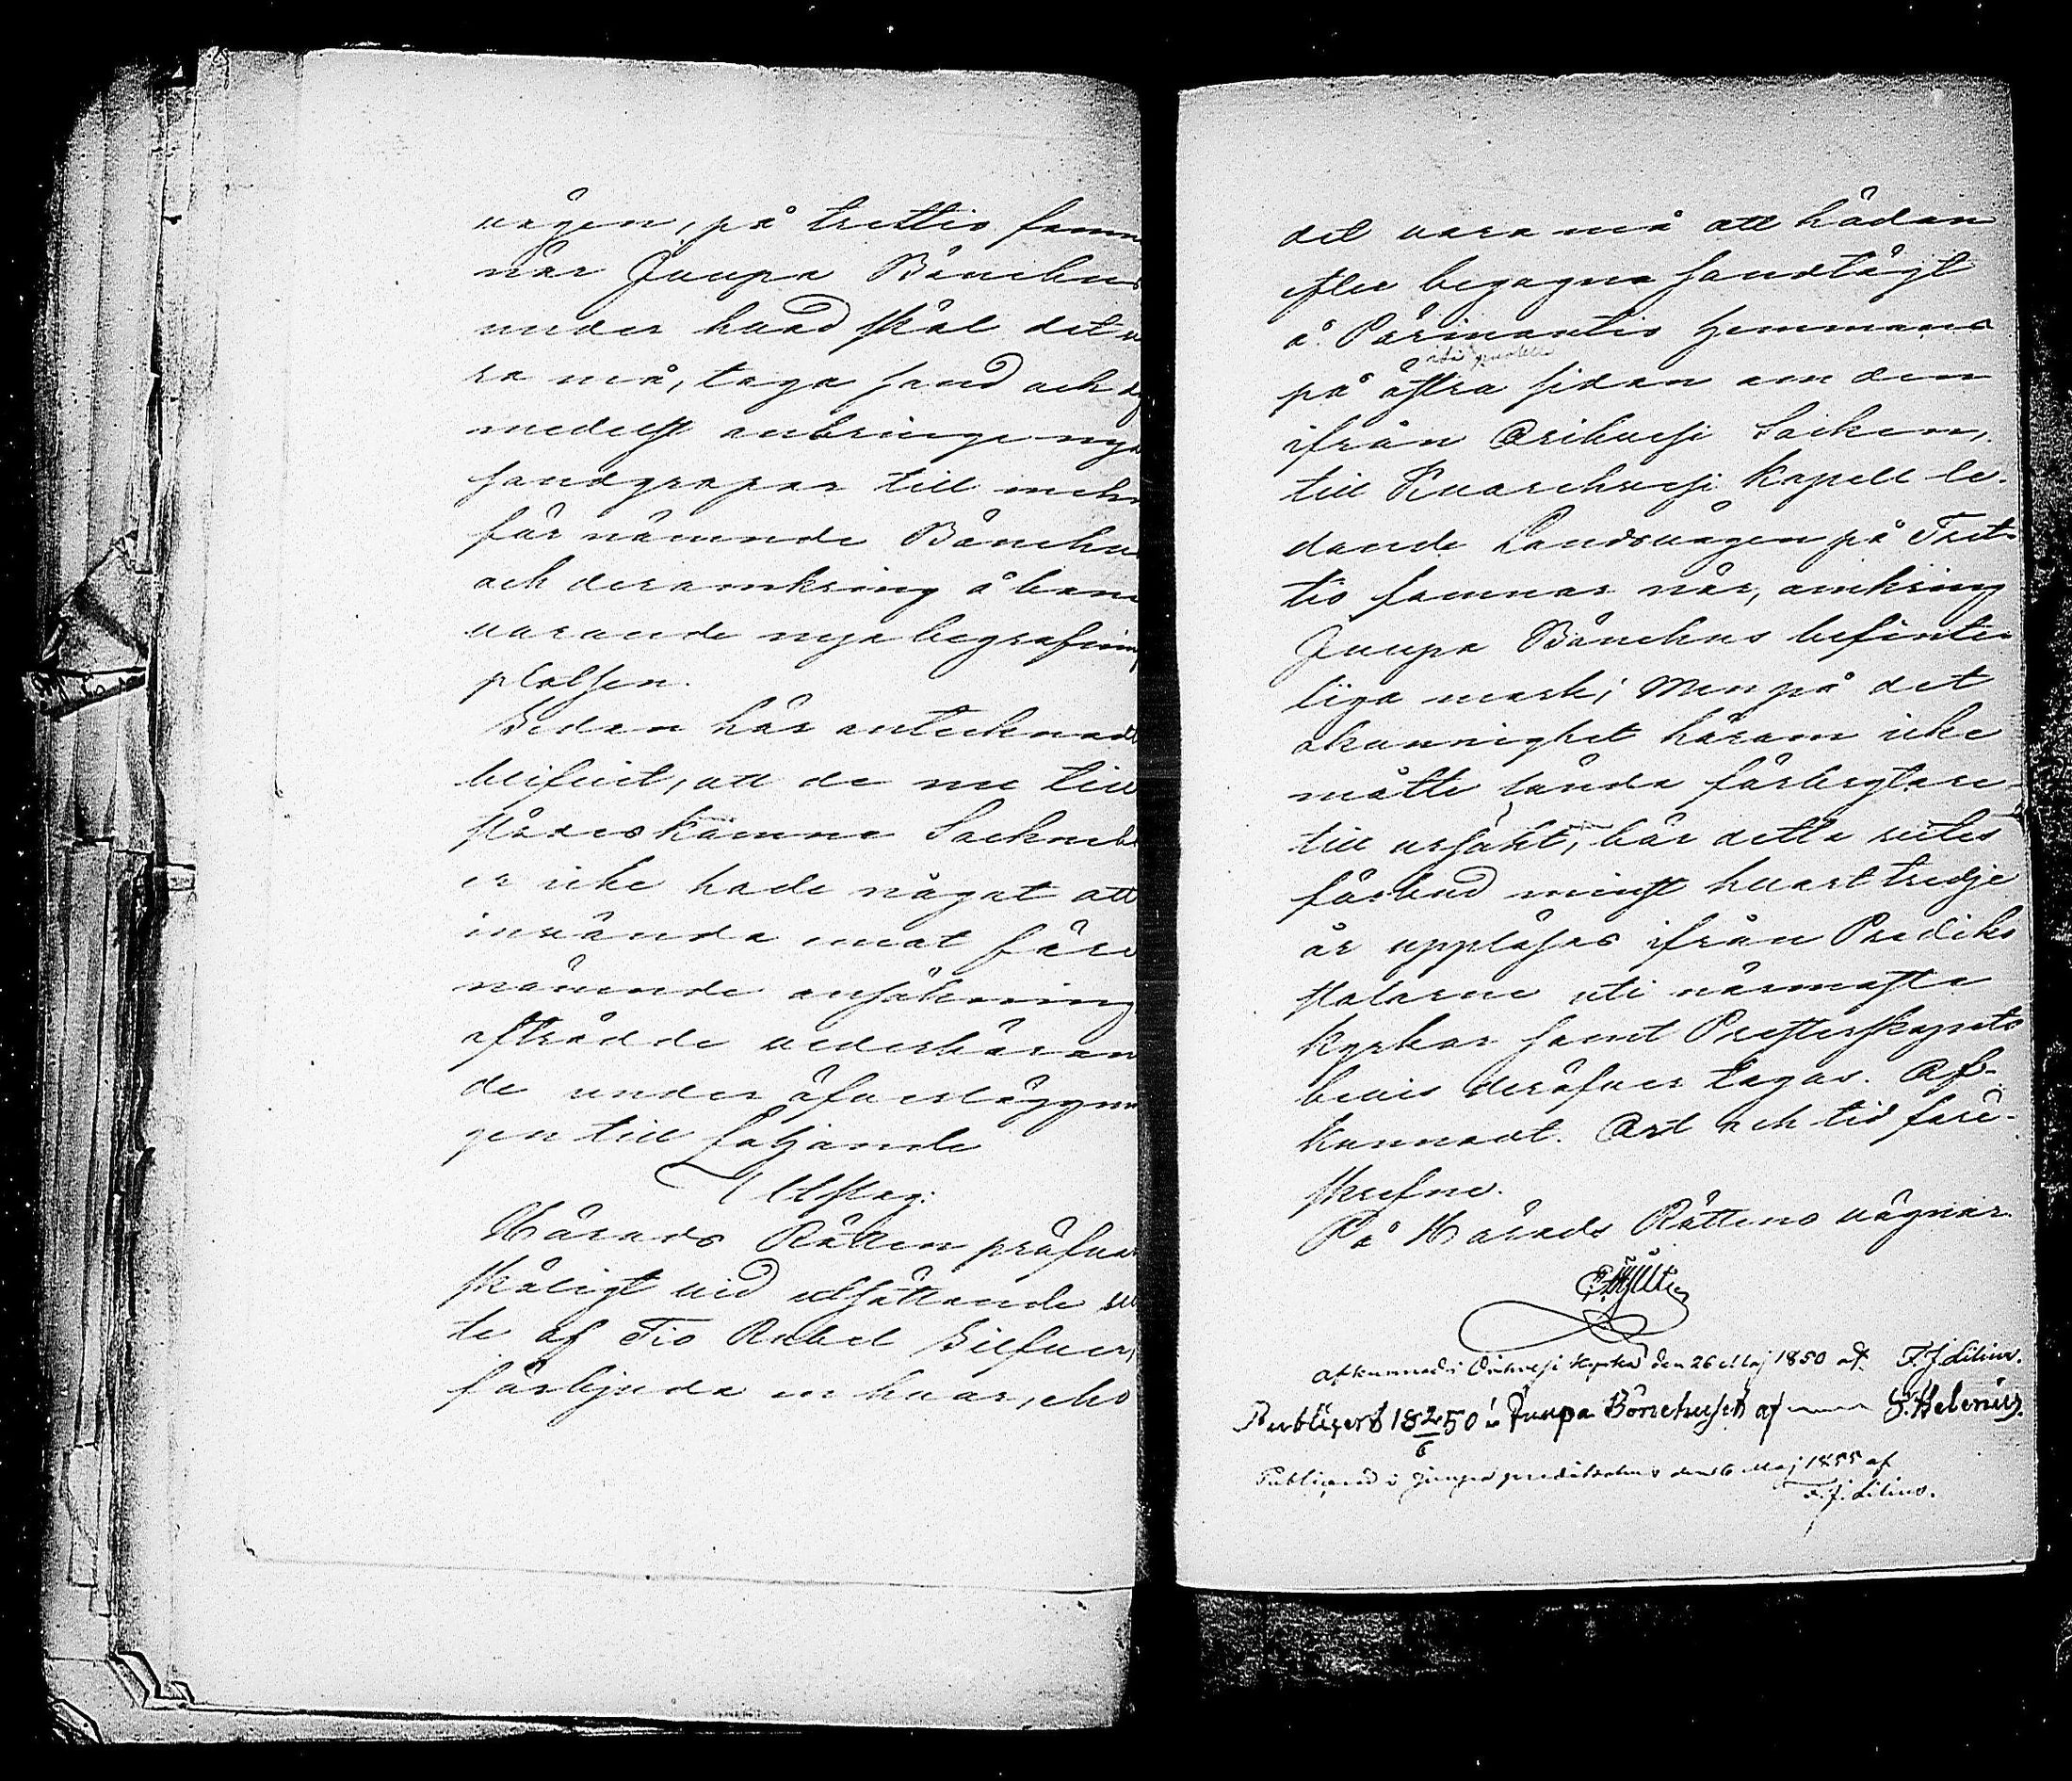 vägen, på trettio famn
när Juupa Bönehus
under hvad skäl det v
ra må, taga sand och
medelst anbringe nya
sandgropar till mehn
för nämnde Bönehu
och deromkring å ban
varande nya begrafnin
platsen.
Sedan här antecknadt
blifvit, att de nu till
städes komne Sockneb
er icke hade något att
invända emot före
nämnde ansökning
afträdde vederböran
de under öfverläggni
gen till följande
Utslag:
Härads Rätten pröfvar
skäligt vid utsättande vi
te af Tio Rubel Silfver,
förbjuda en hvar, eho
det vara må att hädan
efter begagna sandtägt
å Pärimantio Hemmans
på östra sidan om den
ifrån Orihvesi Socken,
till Kuorehvesi Kapell le-
dande Landsvägen på Tret-
tio famnar när, omkring
Juupa Bönehus befinte-
liga mark; Men på det
okunnighet härom icke
måtte lända förbrytare
till ursäkt, bör detta vites
förbud minst hvart tredje
år uppläsas ifrån Prediko
stolarne uti närmaste
kyrkor samt Presterskapets
bevis deröfver tagas. Af-
kunnadt. Ort och tid före-
skrefne.
På Härads Rättens vägnar.
afkunnad i Orihvesi kyrka den 26 Maj 1850 af F. J. Lilius.
Publicerd 18 2/6 50 i Juupa Bönehuset af S. Helenius.
Publicerad i Juupa predikohus den 6 Maj 1855 af
F. J. Lilius.